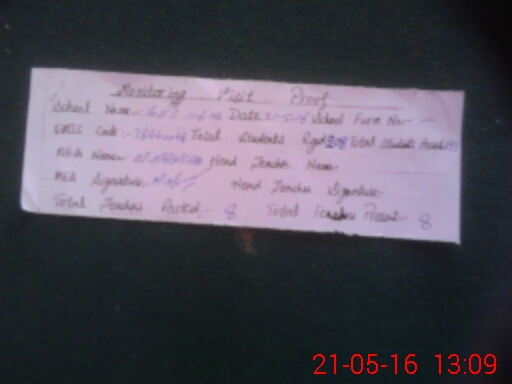 Monitoring Visit Proof
School Name:- Date 21-5-16 School Form No:-
EMIS Code:- Total Students Rgd 208 Total Students Present
MEA Name:- Head Teacher Name:-
MEA Signature:- Head Teacher Signature:-
Total Teachers Posted:- 8 Total Teachers Present:- 8
21-05-16 13:09